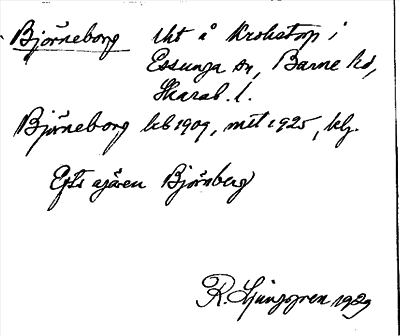 Björneborg lht å Krokstorp i
Essunga sn, Barne hd,
Skarab. l.
Björneborg kb 1909, mtl 1925, klj.
Efts ägaren Björnberg
R. Ljunggren 1929